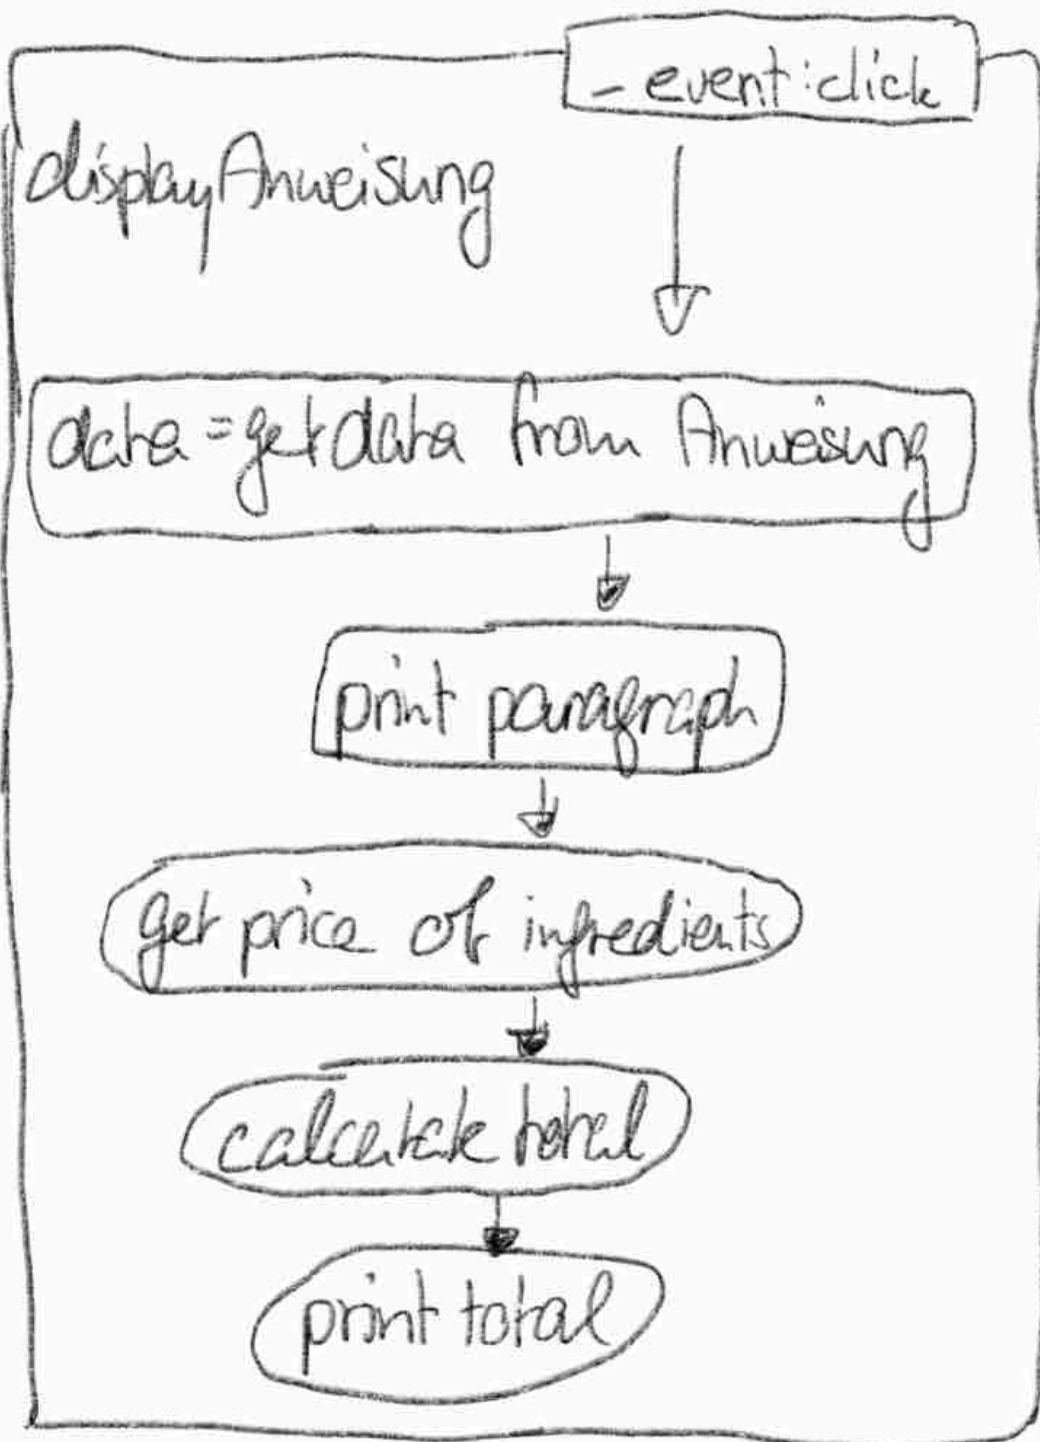 _event:click
displayAnweisung
data = get data from Anweisung
print paragraph
get price of ingredients
calculate total
print total